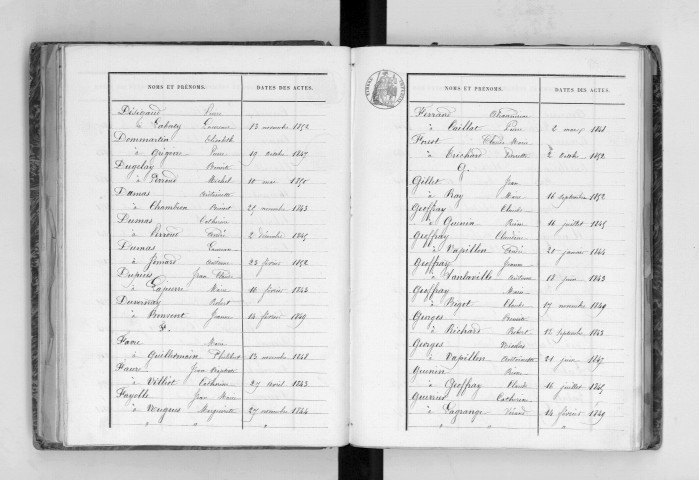 NOMS ET PRÉNOMS. DATES DES ACTES.
Désigaud Pierre
à 13 novembre 1852
Dommartin Elisabeth
à Grégoire Pierre 19 octobre 1847
Duyclay Benoit
à Perroud Michel 10 mai 1850
Dumas Antoinette
à Chambion Benoit 25 novembre 1843
Dumas Catherine
à Perroud André 2 décembre 1845
Dumas
à Jomard 23 février 1852
Dupuis Jean Claude
à Lapierre Marie 10 février 1844
Duvernay Robert
à Bonvent Jeanne 14 février 1849
F.
Favre Marie
à Guillermain Philibert 13 novembre 1848
Favre Jean Baptiste
à Villiot Catherine 27 avril 1843
Fayolle Jean Marie
à Vougues Marguerite 27 novembre 1844
NOMS ET PRÉNOMS. DATES DES ACTES.
Ferrand Alexandrine
à Caillat Pierre 2 mars 1848
Forest Claude Marie
à Trichard Pierrette 2 octobre 1852
G.
Gillet Jean
à Ray Marie 16 septembre 1852
Geoffray Claude
à Guenin Reine 16 juillet 1845
Geoffray Claudine
à Papillon André 21 janvier 1844
Geoffray Jeanne
à Santaville Antoine 18 juin 1843
Geoffray Marie
à Bizet Claude 17 novembre 1849
Georges Benoite
à Richard Robert 12 septembre 1843
Georges Nicolas
à Papillon Antoinette 21 juin 1847
Guenin Reine
à Geoffray Claude 16 juillet 1845
Guerrier Catherine
à Lagrange Gérard 14 février 1849